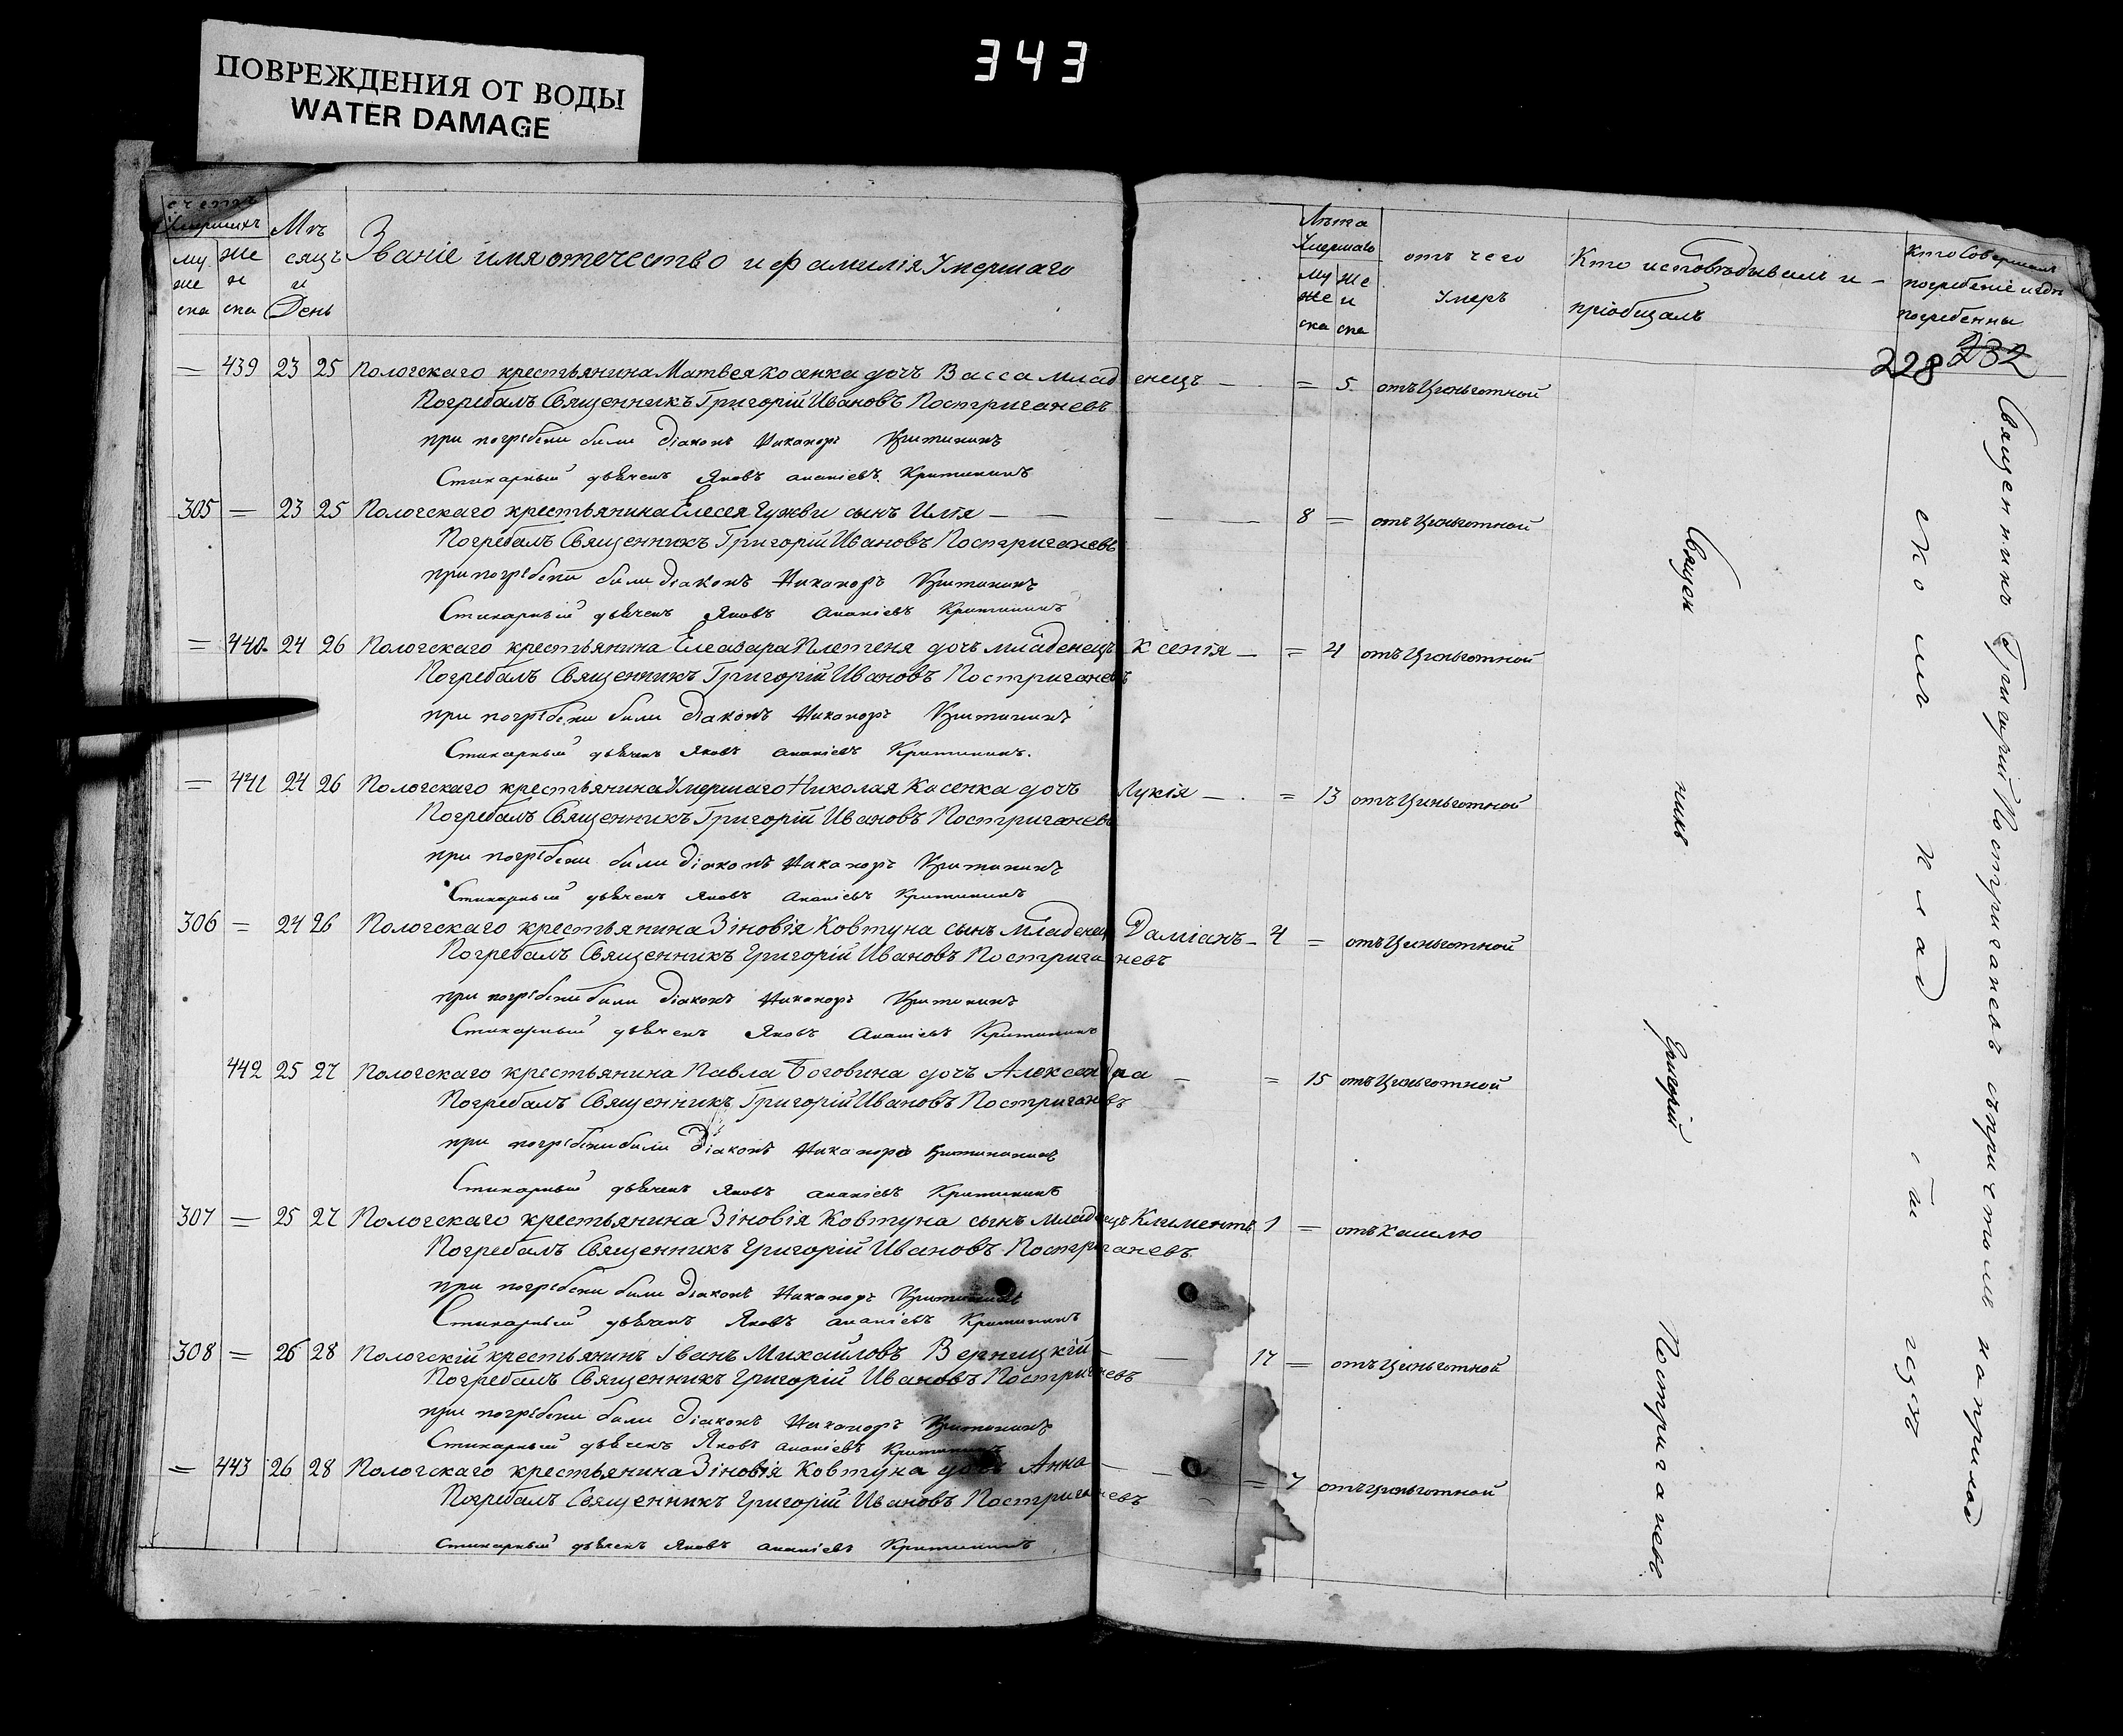 343
ПОВРЕЖДЕНИЯ ОТ ВОДЫ
WATER DAMAGE
счетъ Умершихъ
му же ска
же н ска
Мѣ сяцъ и День
Званіе имя отечество и фамилія Умершаго
Лѣта Умершаго
му же ска
же н ска
отъ чего Умеръ
Кто исповѣдывалъ и пріобщалъ
Кто Совершалъ погребеніе и гдѣ погребенны
228 232
= 439 23 25 Пологскаго крестьянина Матвея Косенка дочъ Васса младенецъ — = 5 отъ Цыньготной
Погребалъ Священникъ Григорій Ивановъ Постригачевъ
при погребени били Діаконъ Никаноръ Критининъ
Стихарный дьячекъ Яковъ Ананіевъ Критининъ
305 = 23 25 Пологскаго крестьянина Елесея Гужви сынъ Илія — — 8 = отъ Цыньготной
Погребалъ Священникъ Григорій Ивановъ Постригачевъ
при погребени били Діаконъ Никаноръ Критининъ
Стихарный дьячекъ Яковъ Ананіевъ Критининъ
= 440 24 26 Пологскаго крестьянина Елеазара Плетеня дочъ младенецъ Ксенія — = 4 отъ Цыньготной
Погребалъ Священникъ Григорій Ивановъ Постригачевъ
при погребени били Діаконъ Никаноръ Критининъ
Стихарный дьячекъ Яковъ Ананіевъ Критининъ.
= 441 24 26 Пологскаго крестьянина Умершаго Николая Касенка дочъ Лукія — = 13 отъ Цыньготной
Погребалъ Священникъ Григорій Ивановъ Постригачевъ
при погребени били Діаконъ Никаноръ Критининъ
Стихарный дьячекъ Яковъ Ананіевъ Критининъ
306 = 24 26 Пологскаго крестьянина Зіновія Ковтуна сынъ Младенецъ Даміанъ — 4 = отъ Цыньготной
Погребалъ Священникъ Григорій Ивановъ Постригачевъ
при погребени били Діаконъ Никаноръ Критининъ
Стихарный дьячекъ Яковъ Ананіевъ Критининъ
442 25 27 Пологскаго крестьянина Павла Боговина дочъ Александра — = 15 отъ Цыньготной
Погребалъ Священникъ Григорій Ивановъ Постригачевъ
при погребени били Діаконъ Никаноръ Критининъ
Стихарный дьячекъ Яковъ Ананіевъ Критининъ
307 = 25 27 Пологскаго крестьянина Зіновія Ковтуна сынъ младенецъ Климентъ 1 = отъ Кашлю
Погребалъ Священникъ Григорій Ивановъ Постригачевъ
при погребени били Діаконъ Никаноръ Критининъ
Стихарный дьячекъ Яковъ Ананіевъ Критининъ
308 = 26 28 Пологскій крестьянинъ Іванъ Михайловъ Верницкій — 17 = отъ Цыньготной
Погребалъ Священникъ Григорій Ивановъ Постригачевъ
при погребени били Діаконъ Никаноръ Критининъ
Стихарный дьячекъ Яковъ Ананіевъ Критининъ
= 443 26 28 Пологскаго крестьянина Зіновія Ковтуна дочъ Анна — = 7 отъ Цыньготной
Погребалъ Священникъ Григорій Ивановъ Постригачевъ
Стихарный дьячекъ Яковъ Ананіевъ Критининъ
Священникъ Григорій Постригачевъ
Священникъ Григорій Постригачевъ съ причтомъ на приход
ском клад